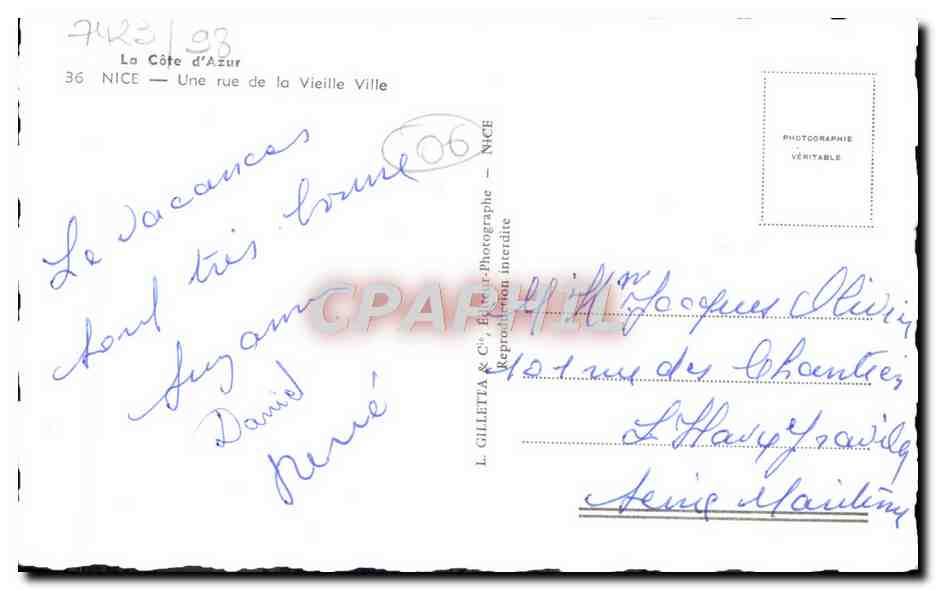 7423/98
La Côte d'Azur
36 NICE — Une rue de la Vieille Ville
06
Le vacances
sont très bonne
Suzanne
David
René
L. GILLETTA & Cie, Éditeur-Photographe - NICE
Reproduction interdite
PHOTOGRAPHIE
VÉRITABLE
CPARPHIL
M Mm Jacques Olivier
101 rue des Chantier
L Havre Graville
Seine Maritime